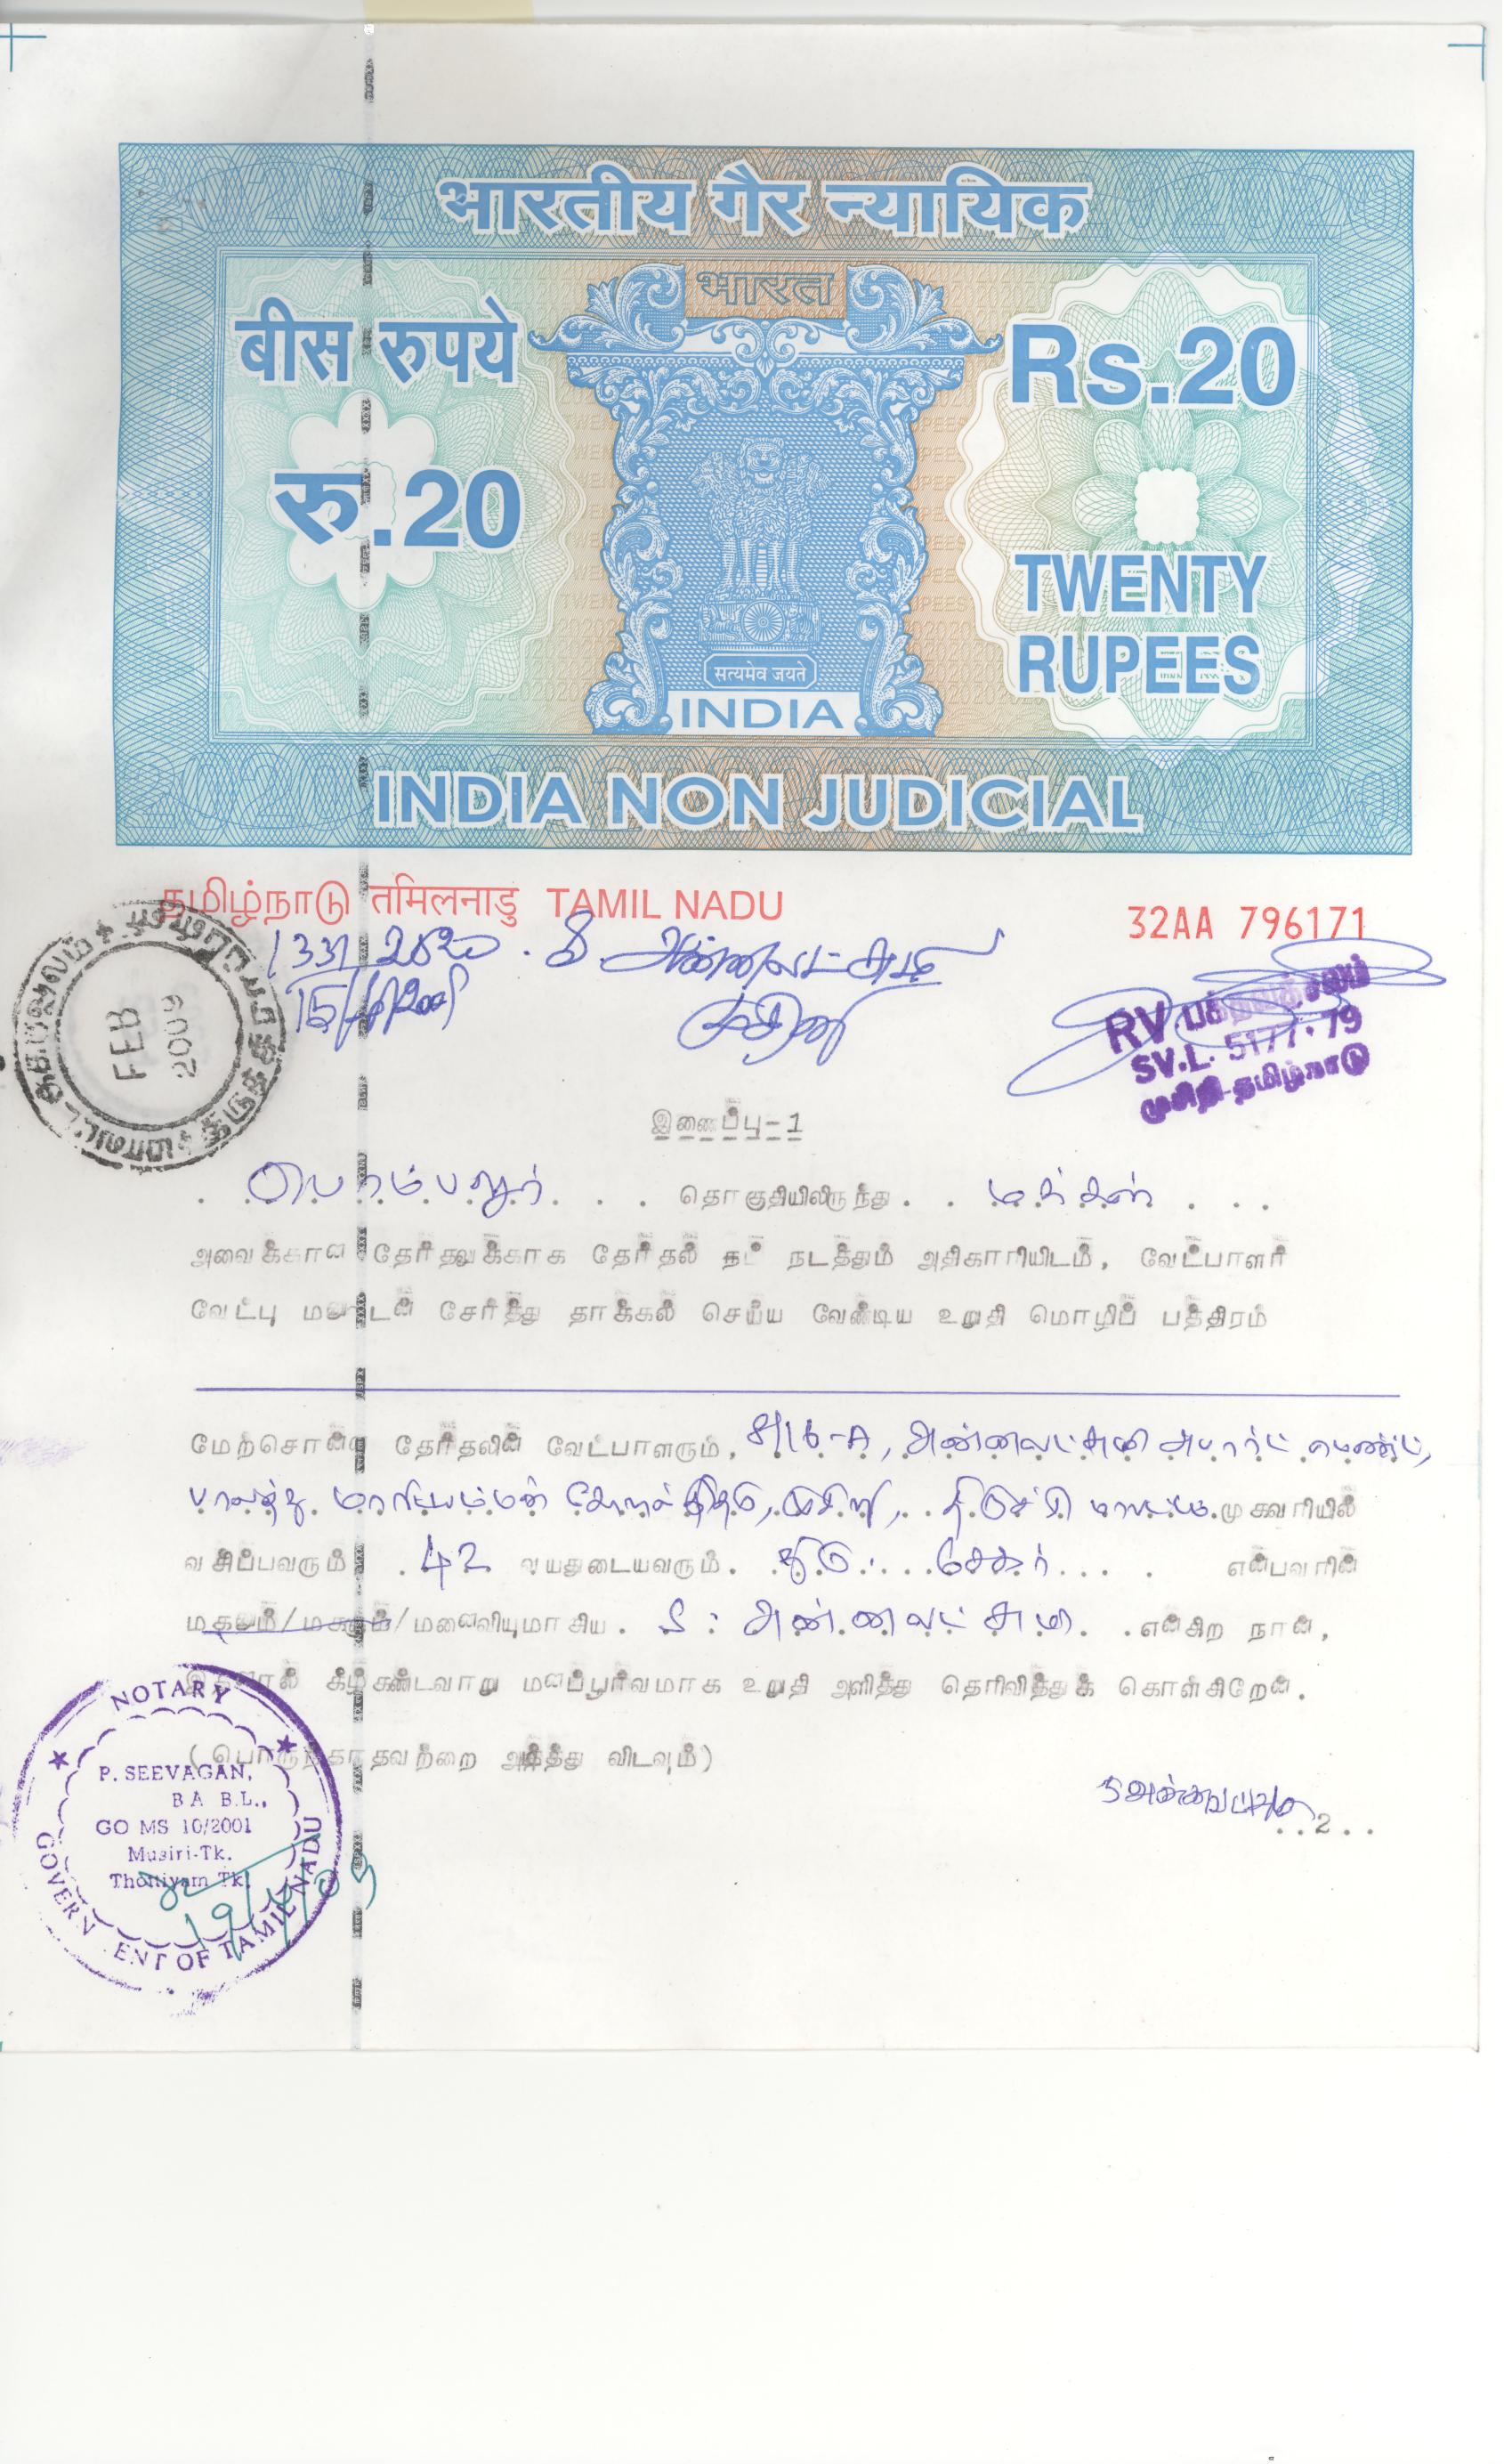 भारतीय गैर न्यायिक
भारत
बीस रुपये
रु.20
Rs.20
TWENTY
RUPEES
सत्यमेव जयते
INDIA
INDIA NON JUDICIAL
தமிழ்நாடு तमिलनाडु TAMIL NADU
32AA 796171
1331 ௹20 . S. அன்னலட்சுமி
முசிறி
FEB
2009
RV
SV.L. 5177.79
முசிறி-தமிழ்நாடு
இணைப்பு-1
. பெரம்பலூர் . . . தொகுதியிலிருந்து . . மக்கள் . . .
அவைக்கான தேர்தலுக்காக தேர்தல் நடத்தும் அதிகாரியிடம், வேட்பாளர்
வேட்பு மனுடன் சேர்த்து தாக்கல் செய்ய வேண்டிய உறுதி மொழிப் பத்திரம்
மேற்சொன்ன தேர்தலின் வேட்பாளரும், 8/16-A, அன்னலட்சுமி அபார்ட்மெண்ட்,
பாலத்து மாரியம்மன் கோவில் , முசிறி, . . திருச்சி மாவட்டம். முகவரியில்
வசிப்பவரும் . 42 வயதுடையவரும். . திரு. . . . சேகர் . . . . என்பவரின்
மகனும்/மகளும்/மனைவியுமாகிய . S. அன்னலட்சுமி. . . என்கிற நான்,
இதனால் கீழ்கண்டவாறு மனப்பூர்வமாக உறுதி அளித்து தெரிவித்துக் கொள்கிறேன்.
(பொருந்தாதவற்றை அடித்து விடவும்)
S அன்னலட்சுமி
. . 2 . .
NOTARY
P. SEEVAGAN,
B A B.L.,
GO MS 10/2001
Musiri-Tk.
Thottiyam Tk.
GOVERN ENT OF TAMIL NADU